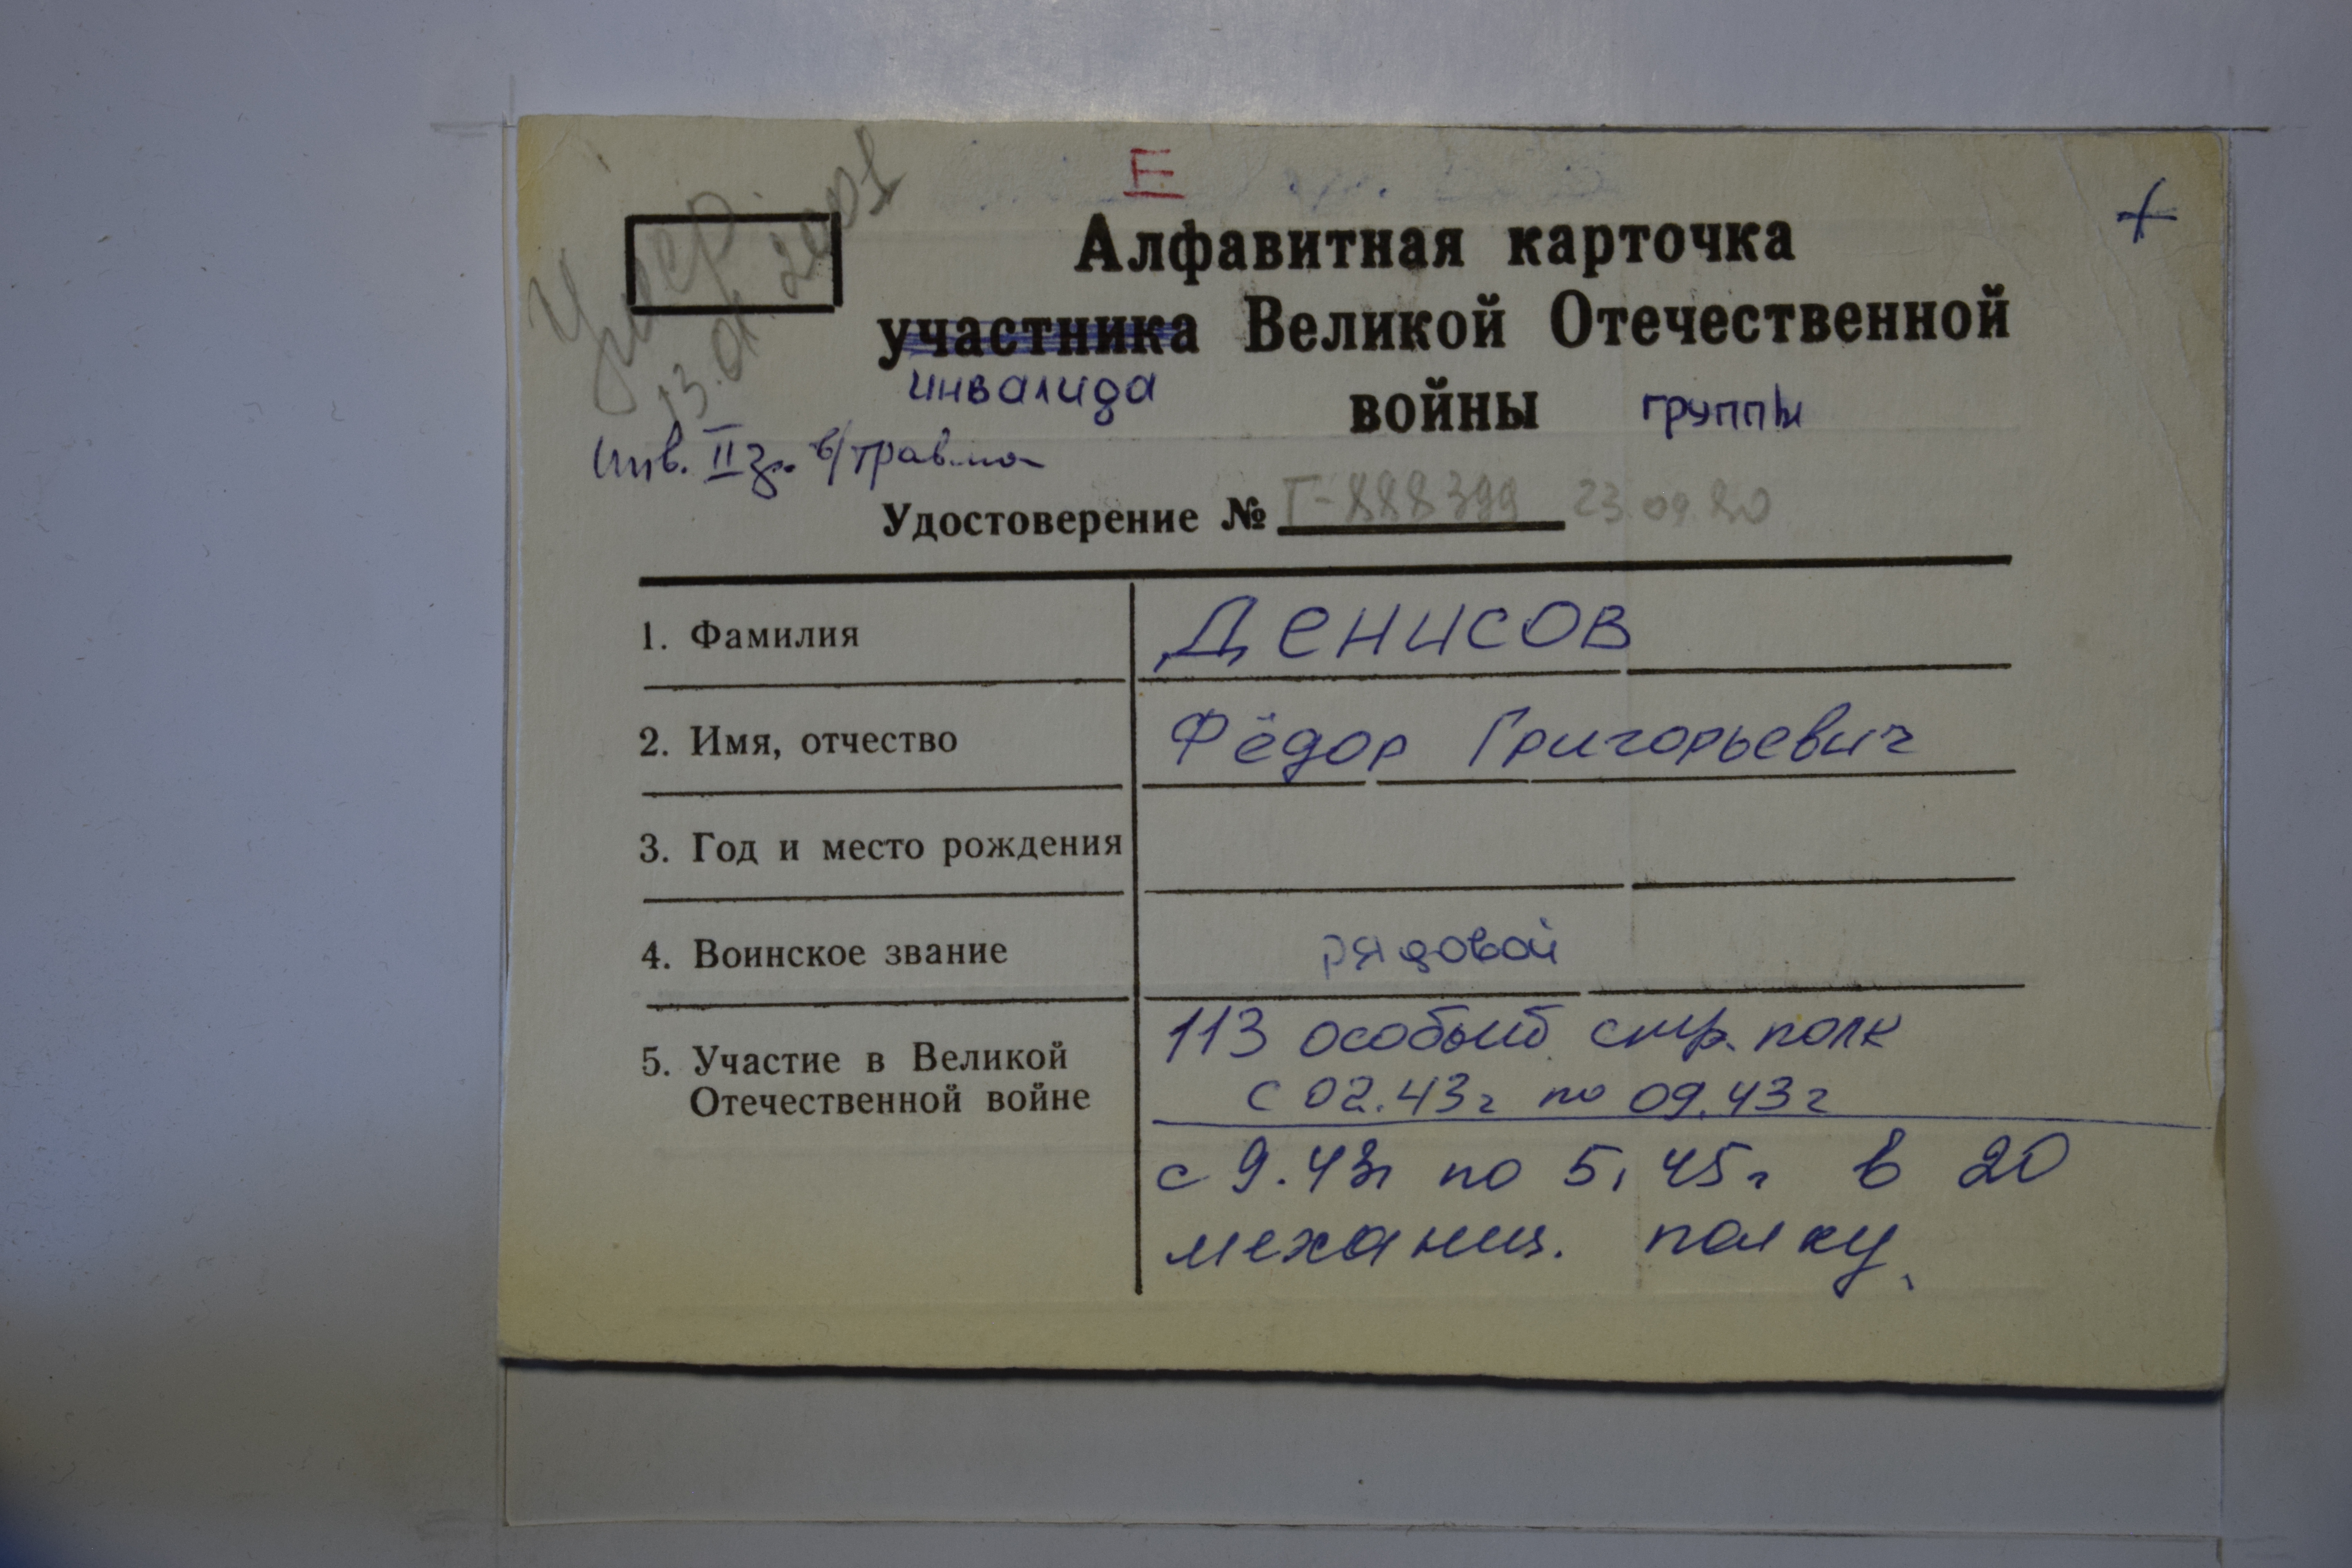 Е
+
Умер
13.01.2001
Алфавитная карточка
участника Великой Отечественной
инвалида
войны группы
Инв. II гр. в/травма
Удостоверение № Г-888399 23.09.80
1. Фамилия ДЕНИСОВ
2. Имя, отчество Фёдор Григорьевич
3. Год и место рождения
4. Воинское звание рядовой
5. Участие в Великой Отечественной войне
113 особый стр. полк
с 02.43г по 09.43г
с 9.43г по 5.45г в 20
механиз. полку